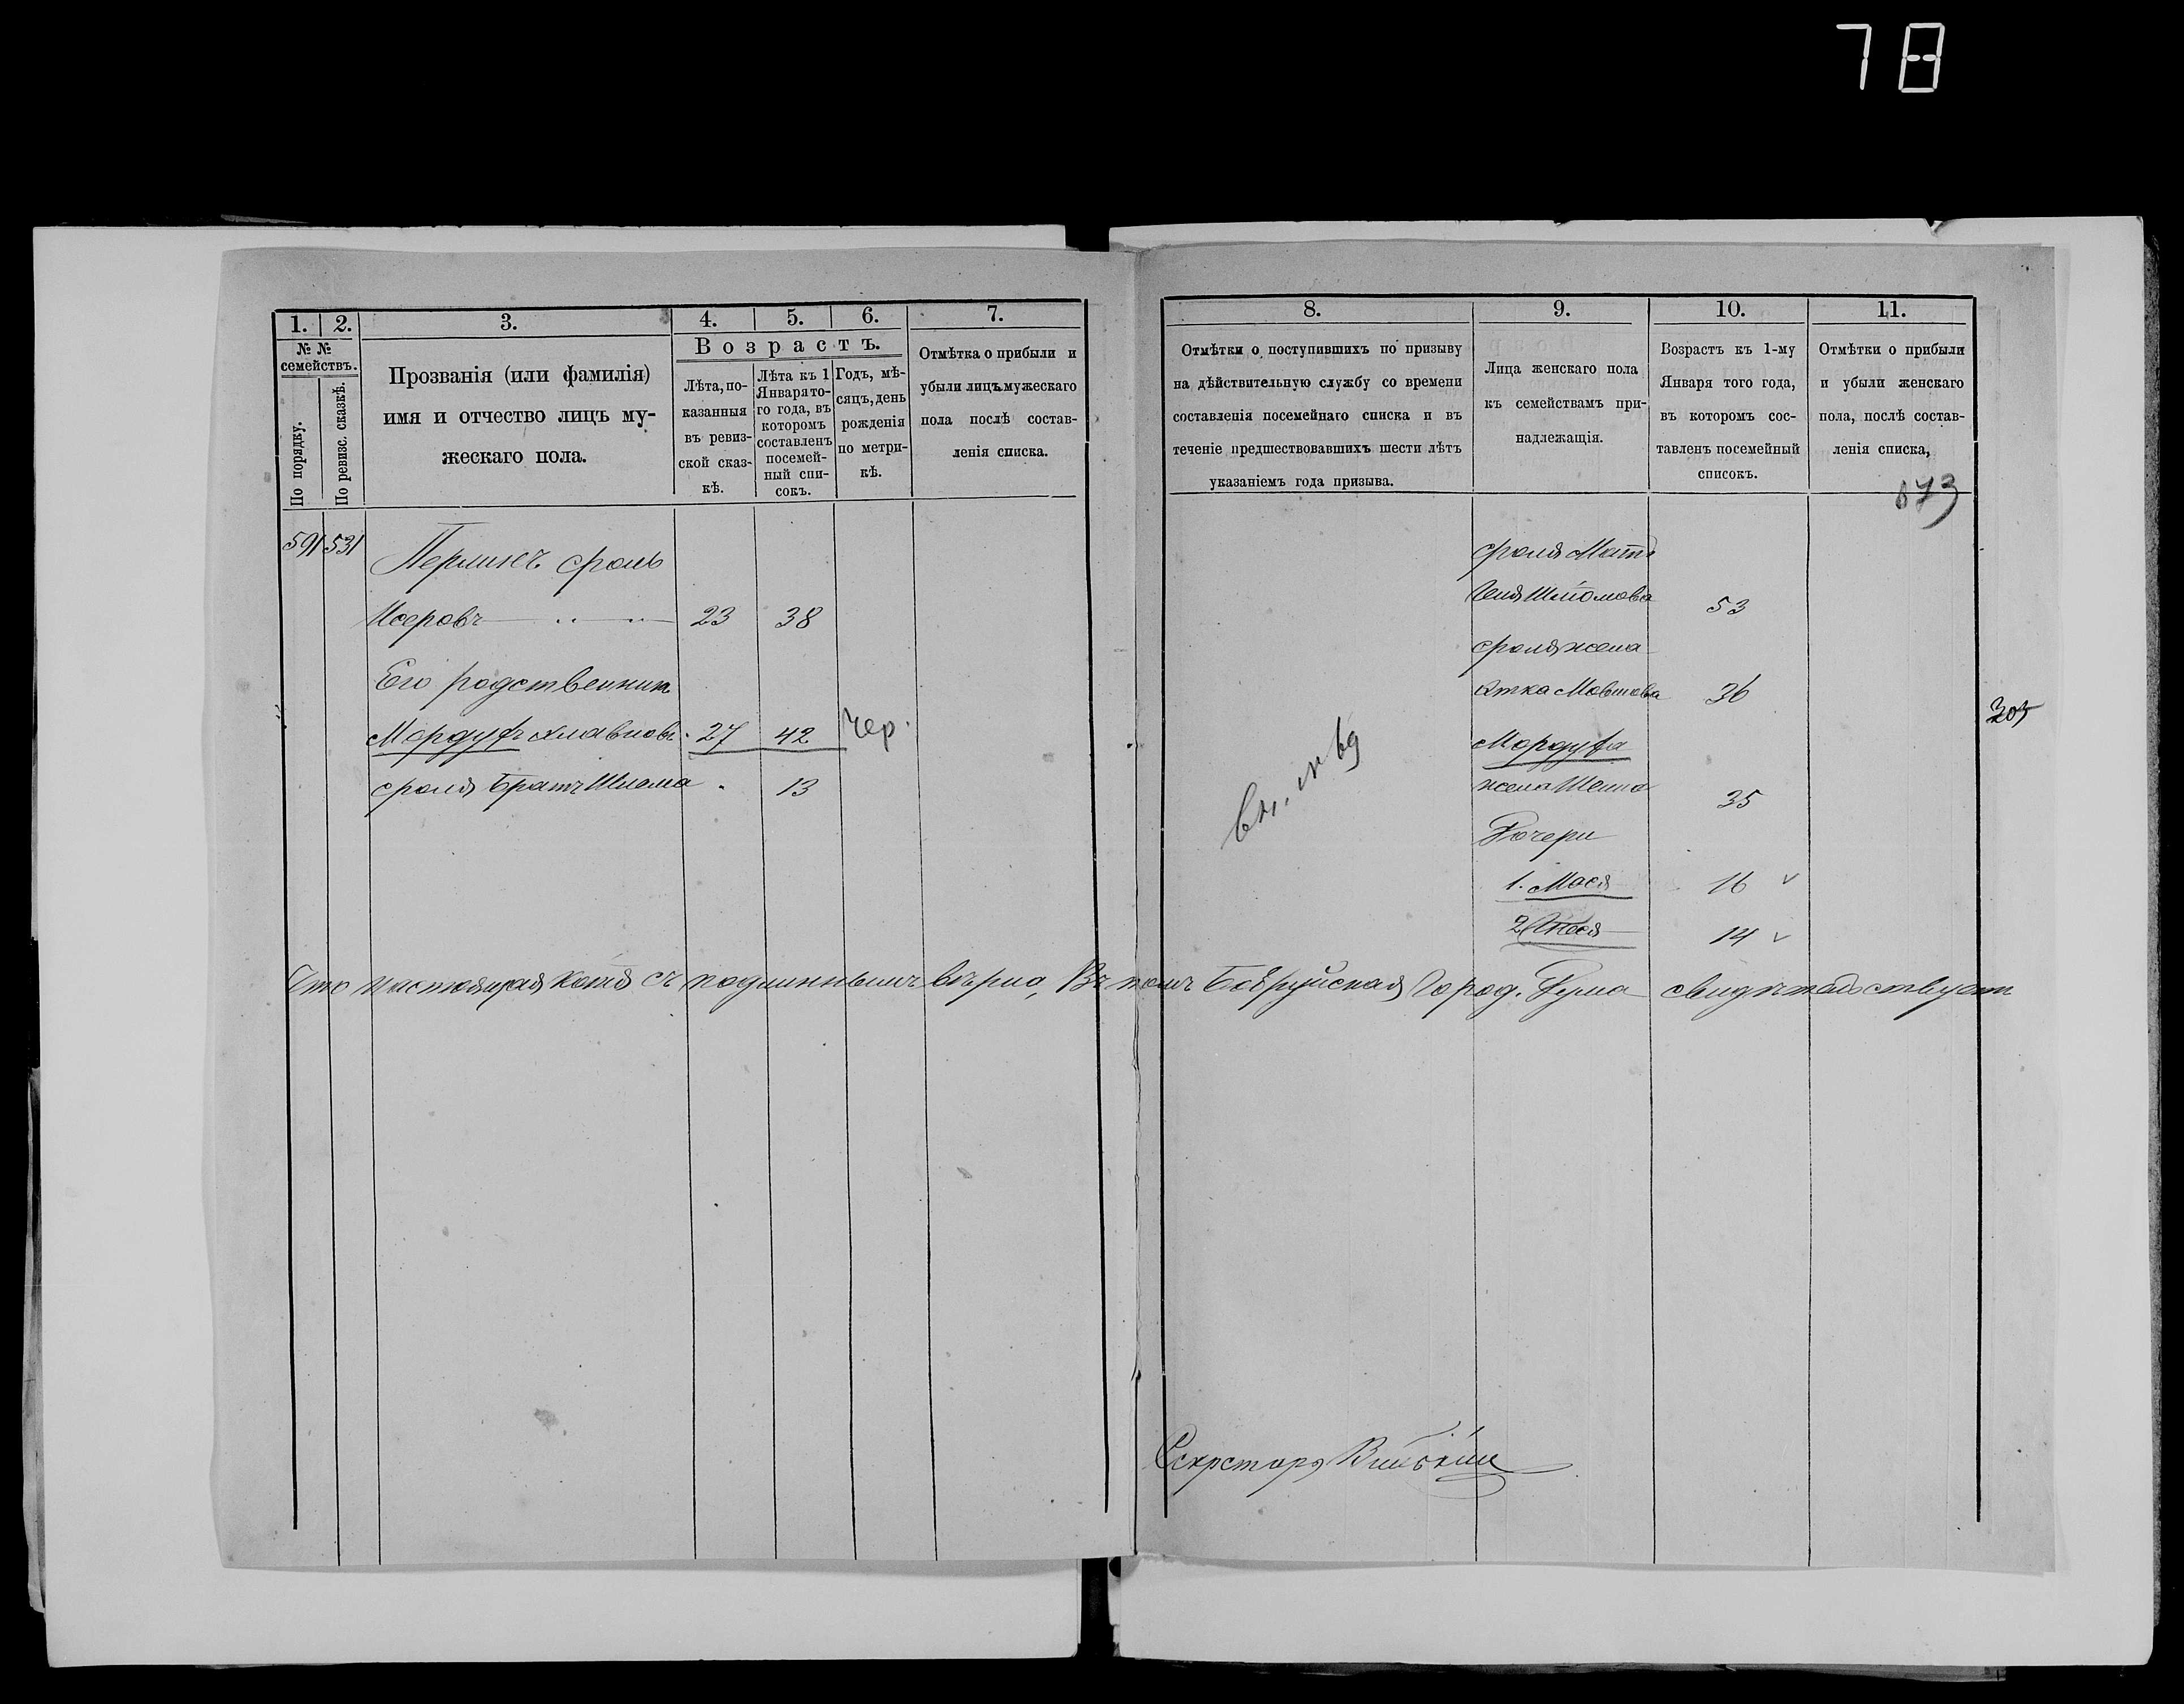 78
1. 2. 3. 4. 5. 6. 7.
№ №
семействъ.
По порядку.
По ревизс. сказкѣ.
Прозванія (или фамилія)
имя и отчество лицъ му-
жескаго пола.
Возрастъ.
Лѣта, по-
казанныя
въ ревиз-
ской сказ-
кѣ.
Лѣта къ 1
Января то-
го года, въ
которомъ
составленъ
посемей-
ный спи-
сокъ.
Годъ, мѣ-
сяцъ, день
рожденія
по метри-
кѣ.
Отмѣтка о прибыли и
убыли лицъ мужескаго
пола послѣ состав-
ленія списка.
591 531 Перликъ сроль
Исеровъ 23 38
Его родственникъ
Мордухъ 27 42 Чер.
сроля братъ Шлома 13
8. 9. 10. 11.
Отмѣтки о поступившихъ по призыву
на дѣйствительную службу со времени
составленія посемейнаго списка и въ
теченіе предшествовавшихъ шести лѣтъ
указаніемъ года призыва.
Лица женскаго пола
къ семействамъ при-
надлежащія.
Возрастъ къ 1-му
Января того года,
въ которомъ сос-
тавленъ посемейный
списокъ.
Отмѣтки о прибыли
и убыли женскаго
пола, послѣ состав-
ленія списка,
673
сроля Мать
Шломова 53
сроля жена
Мовшова 36
Мордуха
жена 35
Дочери
1. Мася 16
2 14
Что настоящая копія съ подлиннымъ вѣрна, Въ томъ Бобруйская Город. Дума свидѣтельствуетъ
Секретарь